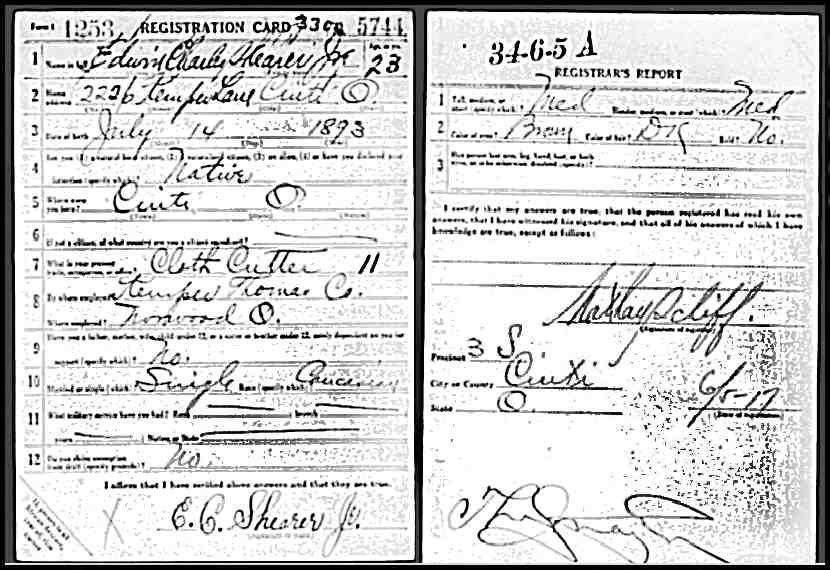 Form 1 1253 REGISTRATION CARD 5744
1 Name in full Edwin Charles Shearer Jr. 23
2 Home address Cinti O.
3 Date of birth July 14 1893
4 Native
5 Where were you born? Cinti O.
6 If not a citizen, of what country are you a citizen or subject?
7 What is your present trade, occupation, or office? Cloth Cutter 11
8 By whom employed? Thomas Co.
Where employed? Norwood O.
9 Have you a father, mother, wife, child under 12, or a sister or brother under 12, solely dependent on you for
support (specify which)? No.
10 Married or single (which)? Single Race (specify which)? Caucasian
11 What military service have you had? Rank branch
years Nation or State
12 Do you claim exemption from draft (specify grounds)? No.
I affirm that I have verified above answers and that they are true.
E. C. Shearer Jr.
34-6-5 A
REGISTRAR'S REPORT
1 Tall, medium, or short (specify which)? Med Slender, medium, or stout (which)? Med
2 Color of eyes? Brown Color of hair? DK Bald? No.
3 Has person lost arm, leg, hand, foot, or both
eyes, or is he otherwise disabled (specify)?
I certify that my answers are true, that the person registered has read his own
answers, that I have witnessed his signature, and that all of his answers of which I have
knowledge are true, except as follows:
(Signature of registrar)
Precinct 3 S
City or County Cinti
State O. 6/5-17
(Date of registration)